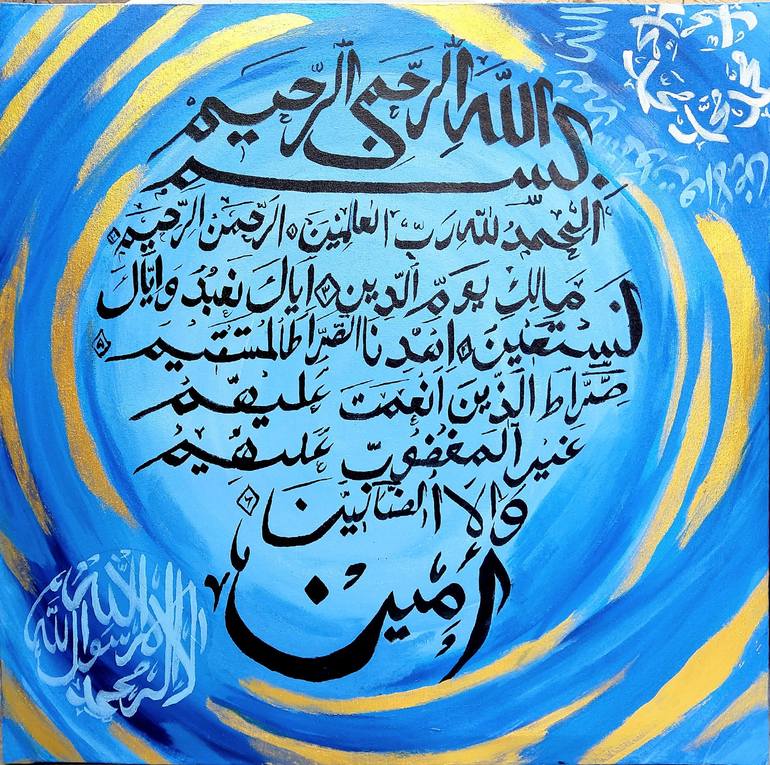 بِسْمِ اللَّهِ الرَّحْمٰنِ الرَّحِيمِ
الْحَمْدُ لِلَّهِ رَبِّ الْعَالَمِينَ الرَّحْمٰنِ الرَّحِيمِ ٢
مَالِكِ يَوْمِ الدِّينِ ٣ اِيَّاكَ نَعْبُدُ وَاِيَّاكَ
نَسْتَعِينُ ٤ اِهْدِنَا الصِّرَاطَ الْمُسْتَقِيمَ ٥
صِرَاطَ الَّذِينَ اَنْعَمْتَ عَلَيْهِمْ
غَيْرِ الْمَغْضُوبِ عَلَيْهِمْ
وَالا الضَّالِّينَ ٦
اٰمِين
لا اله الا الله محمد رسول الله
محمد محمد محمد محمد محمد